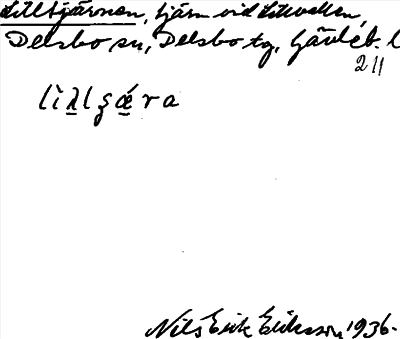 Lilltjärnen, tjärn vid Lillvallen,
Delsbo sn, Delsbo tg, Gävleb. l
211
lìλlʂǽra
Nils Erik Eriksson 1936.